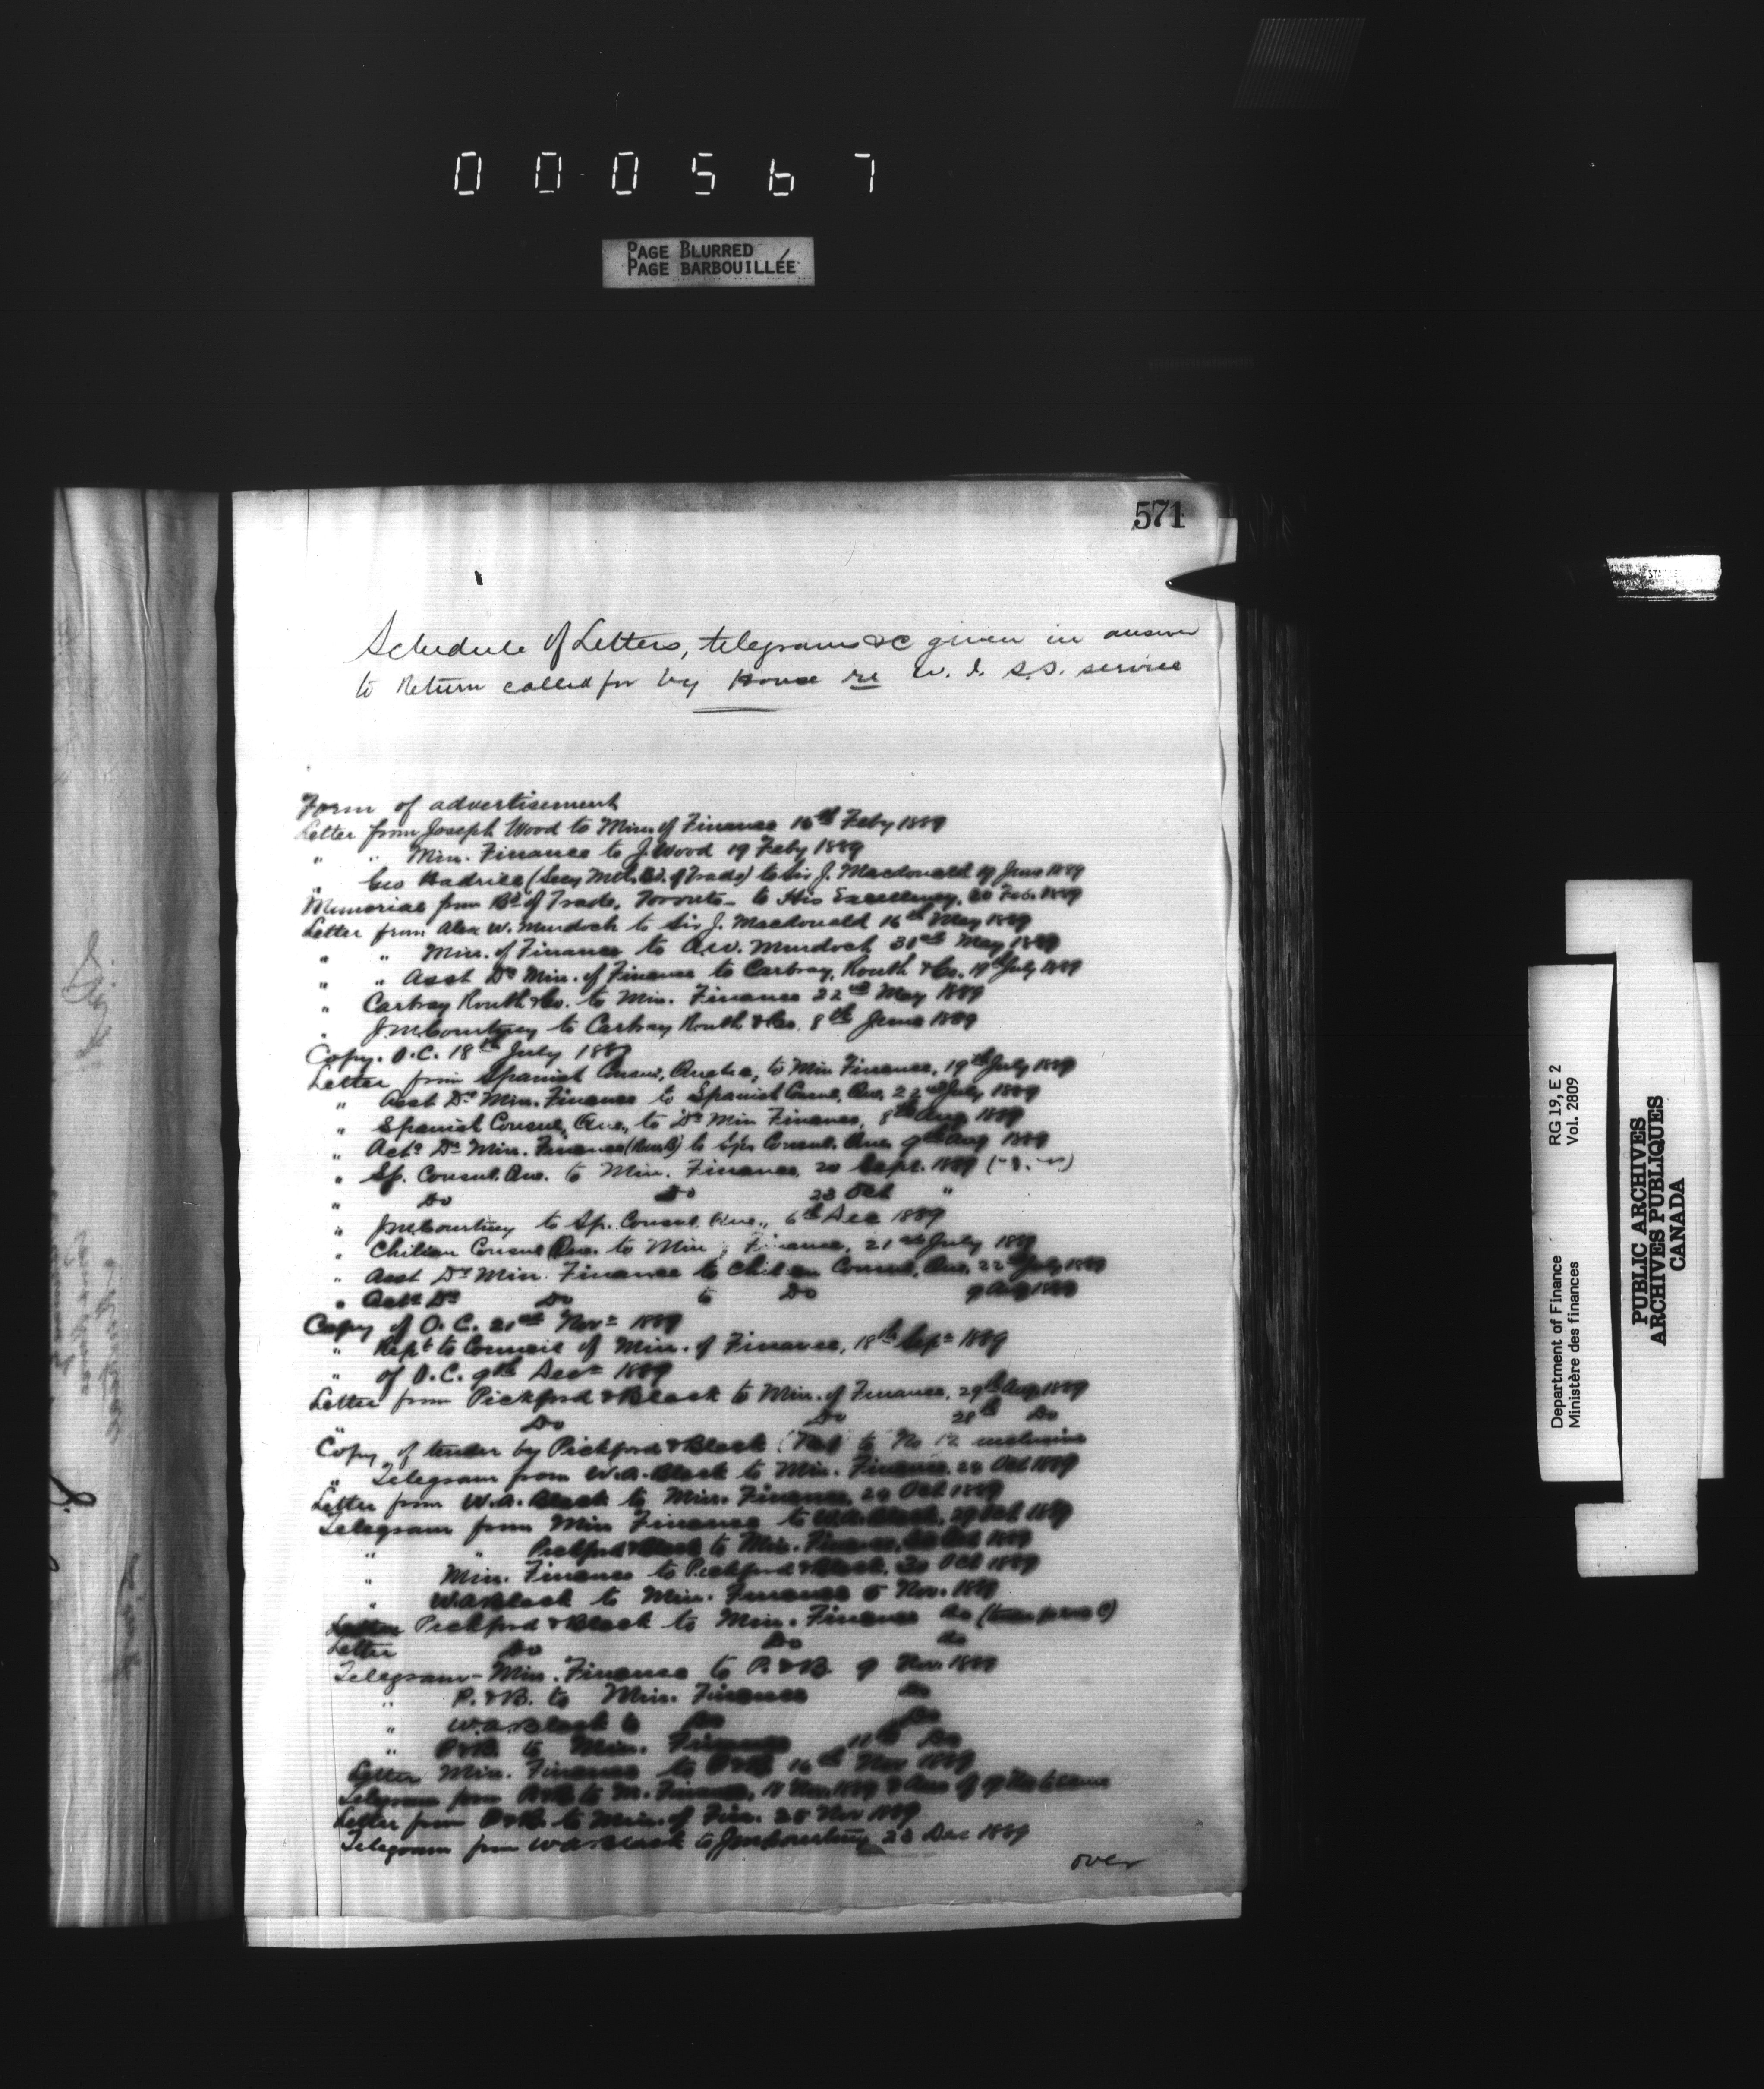 000567
PAGE BLURRED
PAGE BARBOUILLÉE
571
Schedule of Letters, telegrams &c given in answer
to Return called for by House re W. I. S.S. service
Form of advertisement
Letter from Joseph Wood to Min. of Finance 16th Feby 1889
" " Min. Finance to J. Wood 19 Feby 1889
" Geo Hadrill (Secy Mtl. Bd. of Trade) to Sir J. Macdonald 19 June 1889
Memorial from Bd of Trade, Toronto to His Excellency, 20 Feb. 1889
Letter from Alex W. Murdoch to Sir J. Macdonald 16th May 1889
" " Min. of Finance to A.W. Murdoch 31st May 1889
" " Asst Dy Min. of Finance to Carbray, Routh & Co. 19th July 1889
" Carbray Routh & Co. to Min. Finance 22nd May 1889
" J.M. Courtney to Carbray Routh & Co. 8th June 1889
Copy. O.C. 18th July 1889
Letter from Spanish Consul, Quebec, to Min Finance, 19th July 1889
" Asst Dy Min. Finance to Spanish Consul, Que, 22nd July 1889
" Spanish Consul, Que., to Dy Min Finance, 8th Aug 1889
" Actg Dy Min. Finance to Spn Consul, Que 9th Aug 1889
" Sp. Consul, Que. to Min. Finance, 20 Sept. 1889
" Do Do 23 Oct "
" J.M. Courtney to Sp. Consul Que., 6th Dec 1889
" Chilian Consul Que. to Min. Finance, 21st July 1889
" Asst Dy Min. Finance to Chilian Consul, Que, 22nd July 1889
" Actg Dy Do to Do 9 Aug 1889
Copy of O.C. 21st Novr 1889
" Rept to Council of Min. of Finance, 18th Sepr 1889
" of O.C. 9th Decr 1889
Letter from Pickford & Black to Min. of Finance, 29th Aug 1889
" Do Do 28th Do
Copy of tender by Pickford & Black (No 1 to No 12 inclusive
" Telegram from W.A. Black to Min. Finance, Oct 1889
Letter from W.A. Black to Min. Finance, Oct 1889
Telegram from Min Finance to W.A. Black, 29 Oct 1889
" " Pickford & Black to Min. Finance, Oct 1889
" Min. Finance to Pickford & Black, 30 Oct 1889
" W.A. Black to Min. Finance 5 Nov. 1889
Pickford & Black to Min. Finance do
Letter Do Do do
Telegram - Min. Finance to P. & B. 9 Nov. 1889
" P. & B. to Min. Finance do
" W.A. Black to do Do
" P & B. to Min. Finance 11th Do
Letter Min. Finance to P & B 16th Nov 1889
Telegram from P & B to M. Finance, 11 Nov 1889
Letter from P & B. to Min. of Fin. 25 Nov 1889
Telegram from W A Black to J M Courtney 23 Dec 1889
over
Department of Finance
Ministère des finances
RG 19, E 2
Vol. 2809
PUBLIC ARCHIVES
ARCHIVES PUBLIQUES
CANADA